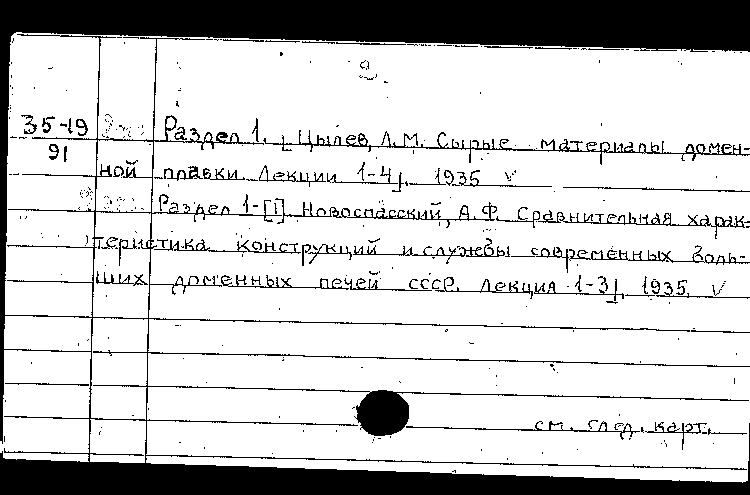 2
35-19 Раздел 1. [Цылев, Л.М. Сырые материалы домен-
91
ной плавки. Лекции 1-4]. 1935 v
Раздел 1-[1]. Новоспасский, А.Ф. Сравнительная харак-
теристика конструкций и службы современных боль-
ших доменных печей СССР. Лекция 1-3]. 1935. v
см. след. карт.